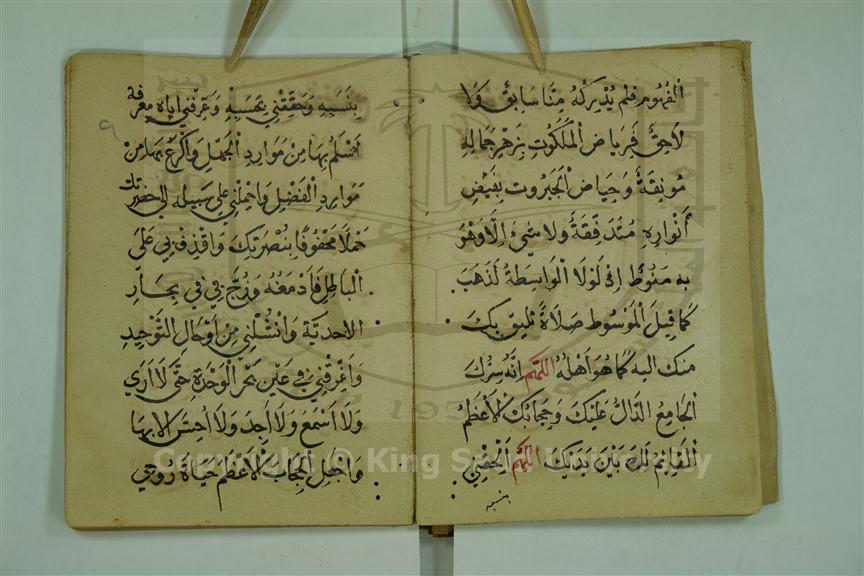 الفُهُومُ فلم يُدْرِكْهُ مِنَّا سَابِقٌ وَلَا
لَاحِقٌ فَرِيَاضُ الْمَلَكُوتِ بِزَهْرِ جَمَالِهِ
مُونِقَةٌ وَحِيَاضُ الْجَبَرُوتِ بِفَيْضِ
أَنْوَارِهِ مُتَدَفِّقَةٌ ولا شيءَ إِلَّا وَهْوَ
بهِ مَنُوطٌ إِذْ لَوْلَا الْوَاسِطَةُ لَذَهَبَ
كَمَا قِيلَ الْمَوْسُوطُ صَلَاةً تَلِيقُ بِكَ
مِنكَ اليهِ كَمَا هُوَ اَهْلُهُ اللهُمَّ اِنَّهُ سِرُّكَ
الْجَامِعُ الدَّالُّ عَلَيْكَ وَحِجَابُكَ الْأَعْظَمُ
الْقَائِمُ لَكَ بَيْنَ يَدَيْكَ اللهُمَّ اَلْحِقْنِي
بنسبه
بِنَسَبِهِ وَحَقِّقْنِي بِحَسَبِهِ وَعَرِّفْنِي اِيَّاهُ مَعْرِفَةً
اَسْلَمُ بِهَا مِنْ مَوَارِدِ الْجَهْلِ وَاَكْرَعُ بِهَا مِنْ
مَوَارِدِ الْفَضْلِ وَاحْمِلْنِي عَلَى سَبِيلِهِ اِلَى حَضْرَتِكَ
حَمْلًا مَحْفُوفًا بِنُصْرَتِكَ وَاقْذِفْ بِي عَلَى
الْبَاطِلِ فَادْمَغُهُ وَزُجَّ بِي فِي بِحَارِ
الاحديّةِ وَانْشُلْنِي مِنْ اَوْحَالِ التَّوْحِيدِ
وَاَغْرِقْنِي فِي عَيْنِ بَحْرِ الْوَحْدَةِ حَتَّى لَا اَرَى
وَلَا اَسْمَعَ وَلَا اَجِدَ وَلَا اُحِسَّ اِلَّا بِهَا
وَاجْعَلِ الْحِجَابَ الْأَعْظَمَ حَيَاةَ رُوحِي
٩
Copyright © King Saud University
1957